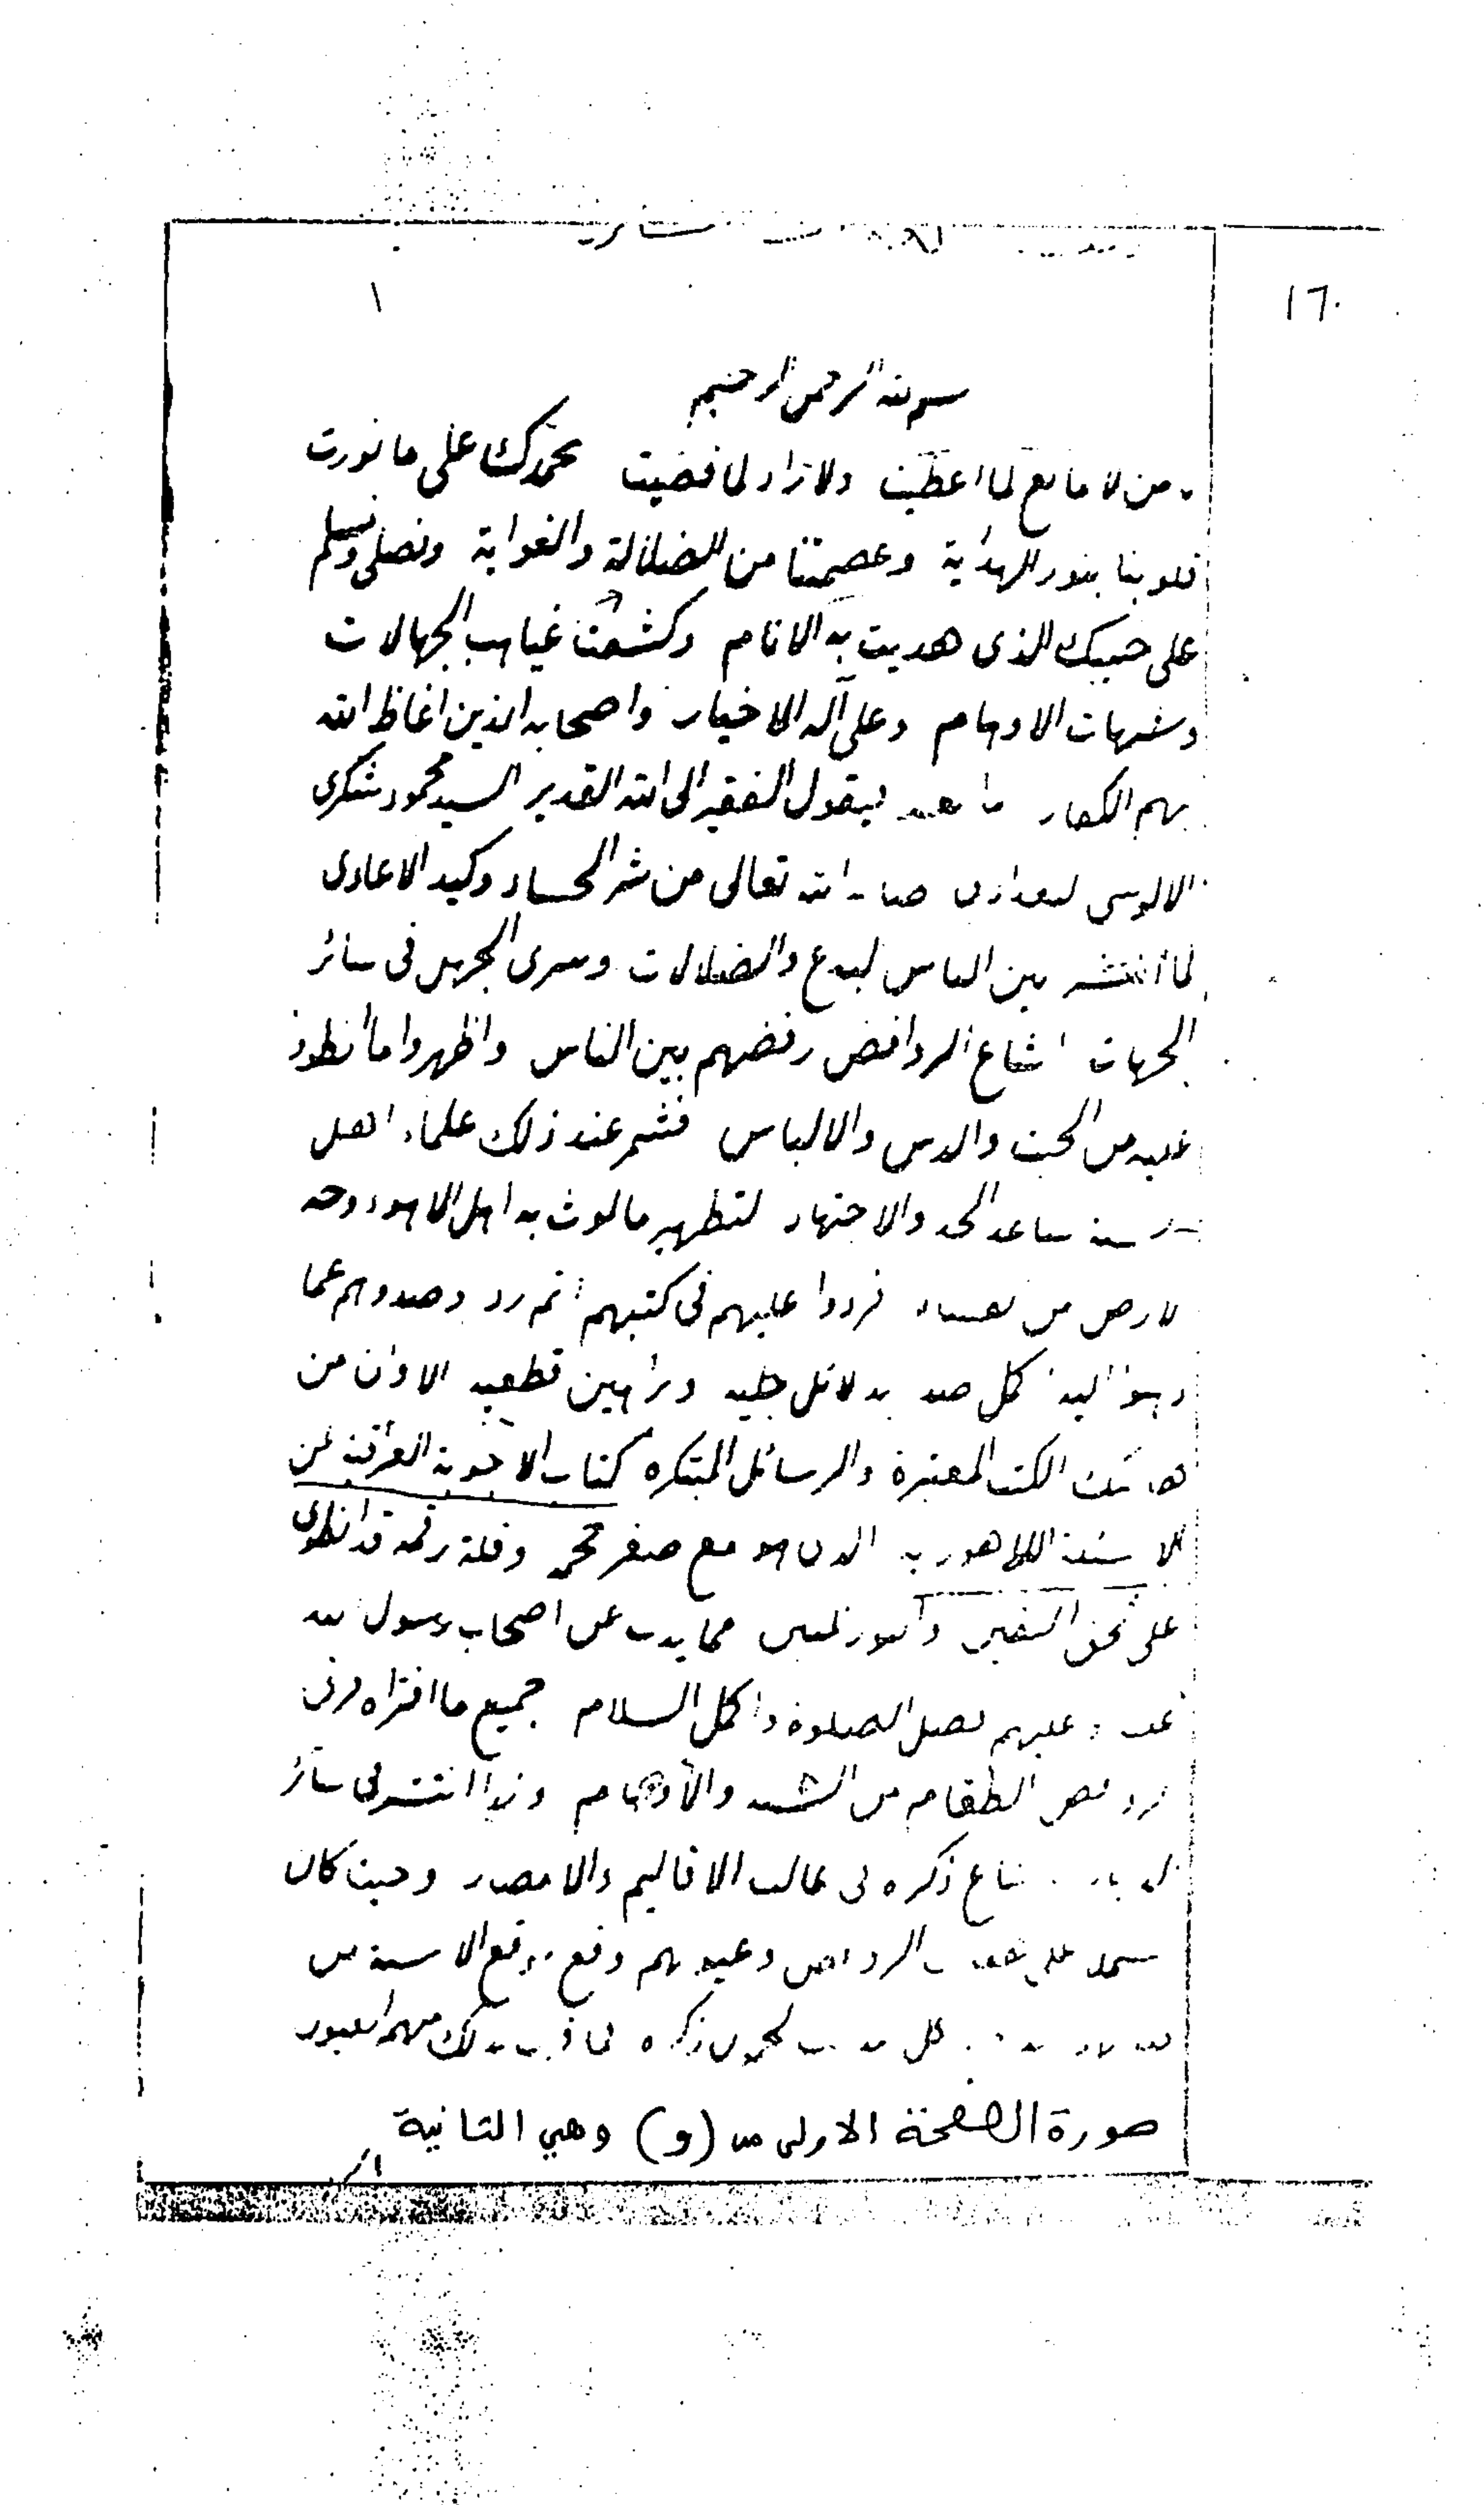 ١٦٠
١
بسم الله الرحمن الرحيم
من لا مانع لما اعطيت ولا راد لما قضيت نحمدك على ما نورت
قلوبنا بنور الهداية وعصمتنا من الضلالة والغواية ونصلي ونسلم
على حبيبك الذى هديت به الانام وكشفت غياهب الجهالات
وشبهات الاوهام وعلى آله الاخيار واصحابه الذين اغاظ الله
بهم الكفار ما بعد فيقول الفقير الى الله القدير السيد محمود شكرى
الالوسي البغدادى صانه الله تعالى من شر الحساد وكيد الاعادى
لما انتشر بين الناس البدع والضلالات وسرى الجهل فى سائر
الجهات اشاع الروافض رفضهم بين الناس واظهروا ما انطووا
عليه من الخبث والدس والالباس فشمر عند ذلك علماء اهل
السنة ساعد الجد والاجتهاد لتطهير ما لوث به اهل الاهواء وجه
الارض من الفساد فردوا عليهم فى كتبهم اتم رد وصدوهم عما
ذهبوا اليه كل صد بدلائل جليه وبراهين قطعيه الا وان من
تلك الكتب المعتبرة والرسائل المبتكره كتاب الاجوبة العراقية عن
الاسئلة اللاهوريه الذى هو مع صغر حجمه وقلة رقمه قد انطوى
على مما يذب عن اصحاب رسول الله
عليه وعليهم افضل الصلوة واكمل السلام جميع ما افتراه
الروافض الطغام من الشبه والاوهام ولذا انتشر فى سائر
الديار وشاع ذكره فى غالب الاقاليم والامصار وحيث كان
على الروافض وعيوبهم وقع موقع الاسنة من
كل ذكره
صورة الصفحة الاولى من (و) وهي الثانية